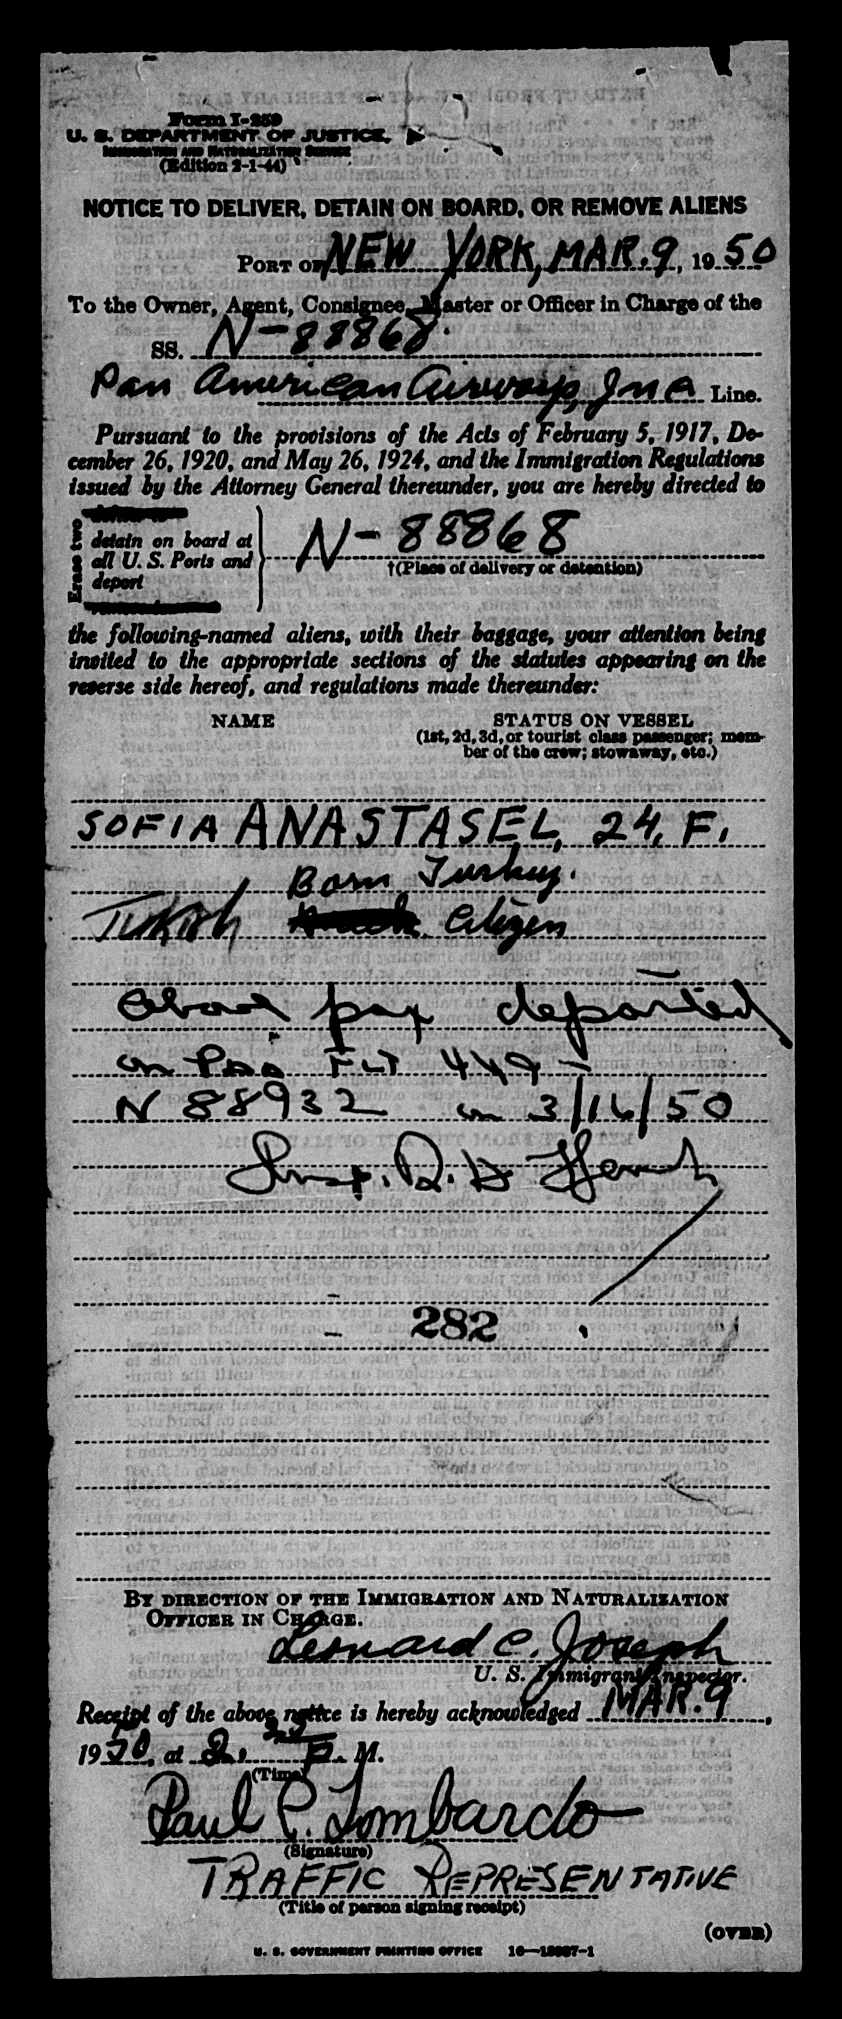 Form I-259
U. S. DEPARTMENT OF JUSTICE,
IMMIGRATION AND NATURALIZATION SERVICE
(Edition 2-1-44)
NOTICE TO DELIVER, DETAIN ON BOARD, OR REMOVE ALIENS
PORT OF NEW YORK, MAR. 9, 1950
To the Owner, Agent, Consignee, Master or Officer in Charge of the
SS. N-88868
Pan American Airways, Inc Line.
Pursuant to the provisions of the Acts of February 5, 1917, De-
cember 26, 1920, and May 26, 1924, and the Immigration Regulations
issued by the Attorney General thereunder, you are hereby directed to
Erase two
detain on board at
all U. S. Ports and
deport
N-88868
†(Place of delivery or detention)
the following-named aliens, with their baggage, your attention being
invited to the appropriate sections of the statutes appearing on the
reverse side hereof, and regulations made thereunder:
NAME STATUS ON VESSEL
(1st, 2d, 3d, or tourist class passenger; mem-
ber of the crew; stowaway, etc.)
SOFIA ANASTASEL, 24, F.
Born Turkey.
Citizen
Above pax departed
on PAA FLT 449 -
N 88932 on 3/16/50
Insp.
282
BY DIRECTION OF THE IMMIGRATION AND NATURALIZATION
OFFICER IN CHARGE.
Leonard C. Joseph
U. S. Immigrant Inspector.
Receipt of the above notice is hereby acknowledged MAR. 9,
1950, at 2. P. M.
(Time)
Paul P. Lombardo
(Signature)
TRAFFIC REPRESENTATIVE
(Title of person signing receipt)
(OVER)
U. S. GOVERNMENT PRINTING OFFICE